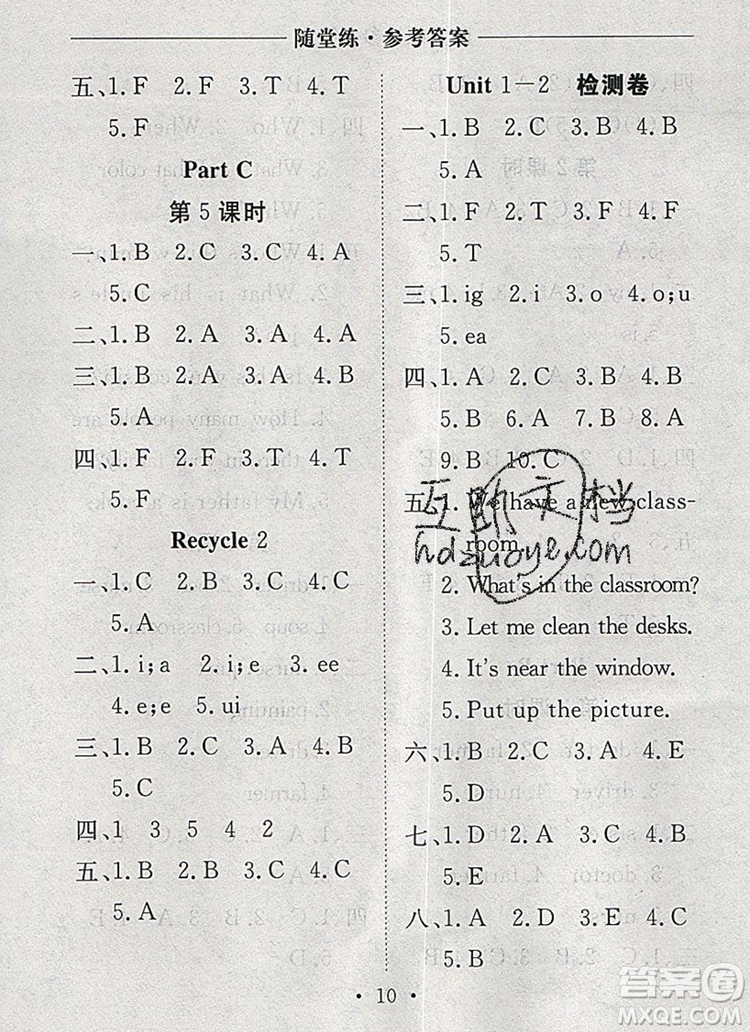 随堂练·参考答案
五、1.F 2.F 3.T 4.T
5.F
Part C
第5课时
一、1.B 2.C 3.C 4.A
5.C
二、1.B 2.A 3.A 4.A
三、1.B 2.A 3.A 4.B
5.A
四、1.F 2.F 3.T 4.T
5.F
Recycle 2
一、1.C 2.B 3.C 4.C
5.A
二、1.i;a 2.i;e 3.ee
4.e;e 5.ui
三、1.B 2.B 3.A 4.B
5.C
四、1 3 5 4 2
五、1.B 2.B 3.C 4.C
5.A
Unit 1－2 检测卷
一、1.B 2.C 3.B 4.B
5.A
二、1.F 2.T 3.F 4.F
5.T
三、1.ig 2.i 3.o 4.o;u
5.ea
四、1.A 2.C 3.A 4.B
5.B 6.A 7.B 8.A
9.B 10.C
五、1. We have a new class-
room.
2. What's in the classroom?
3. Let me clean the desks.
4. It's near the window.
5. Put up the picture.
六、1.C 2.B 3.A 4.E
5.D
七、1.D 2.A 3.C 4.B
5.E
八、1.C 2.D 3.E 4.A
5.B
·10·
互助文档
hdzuoye.com
答案圈
MXQE.COM